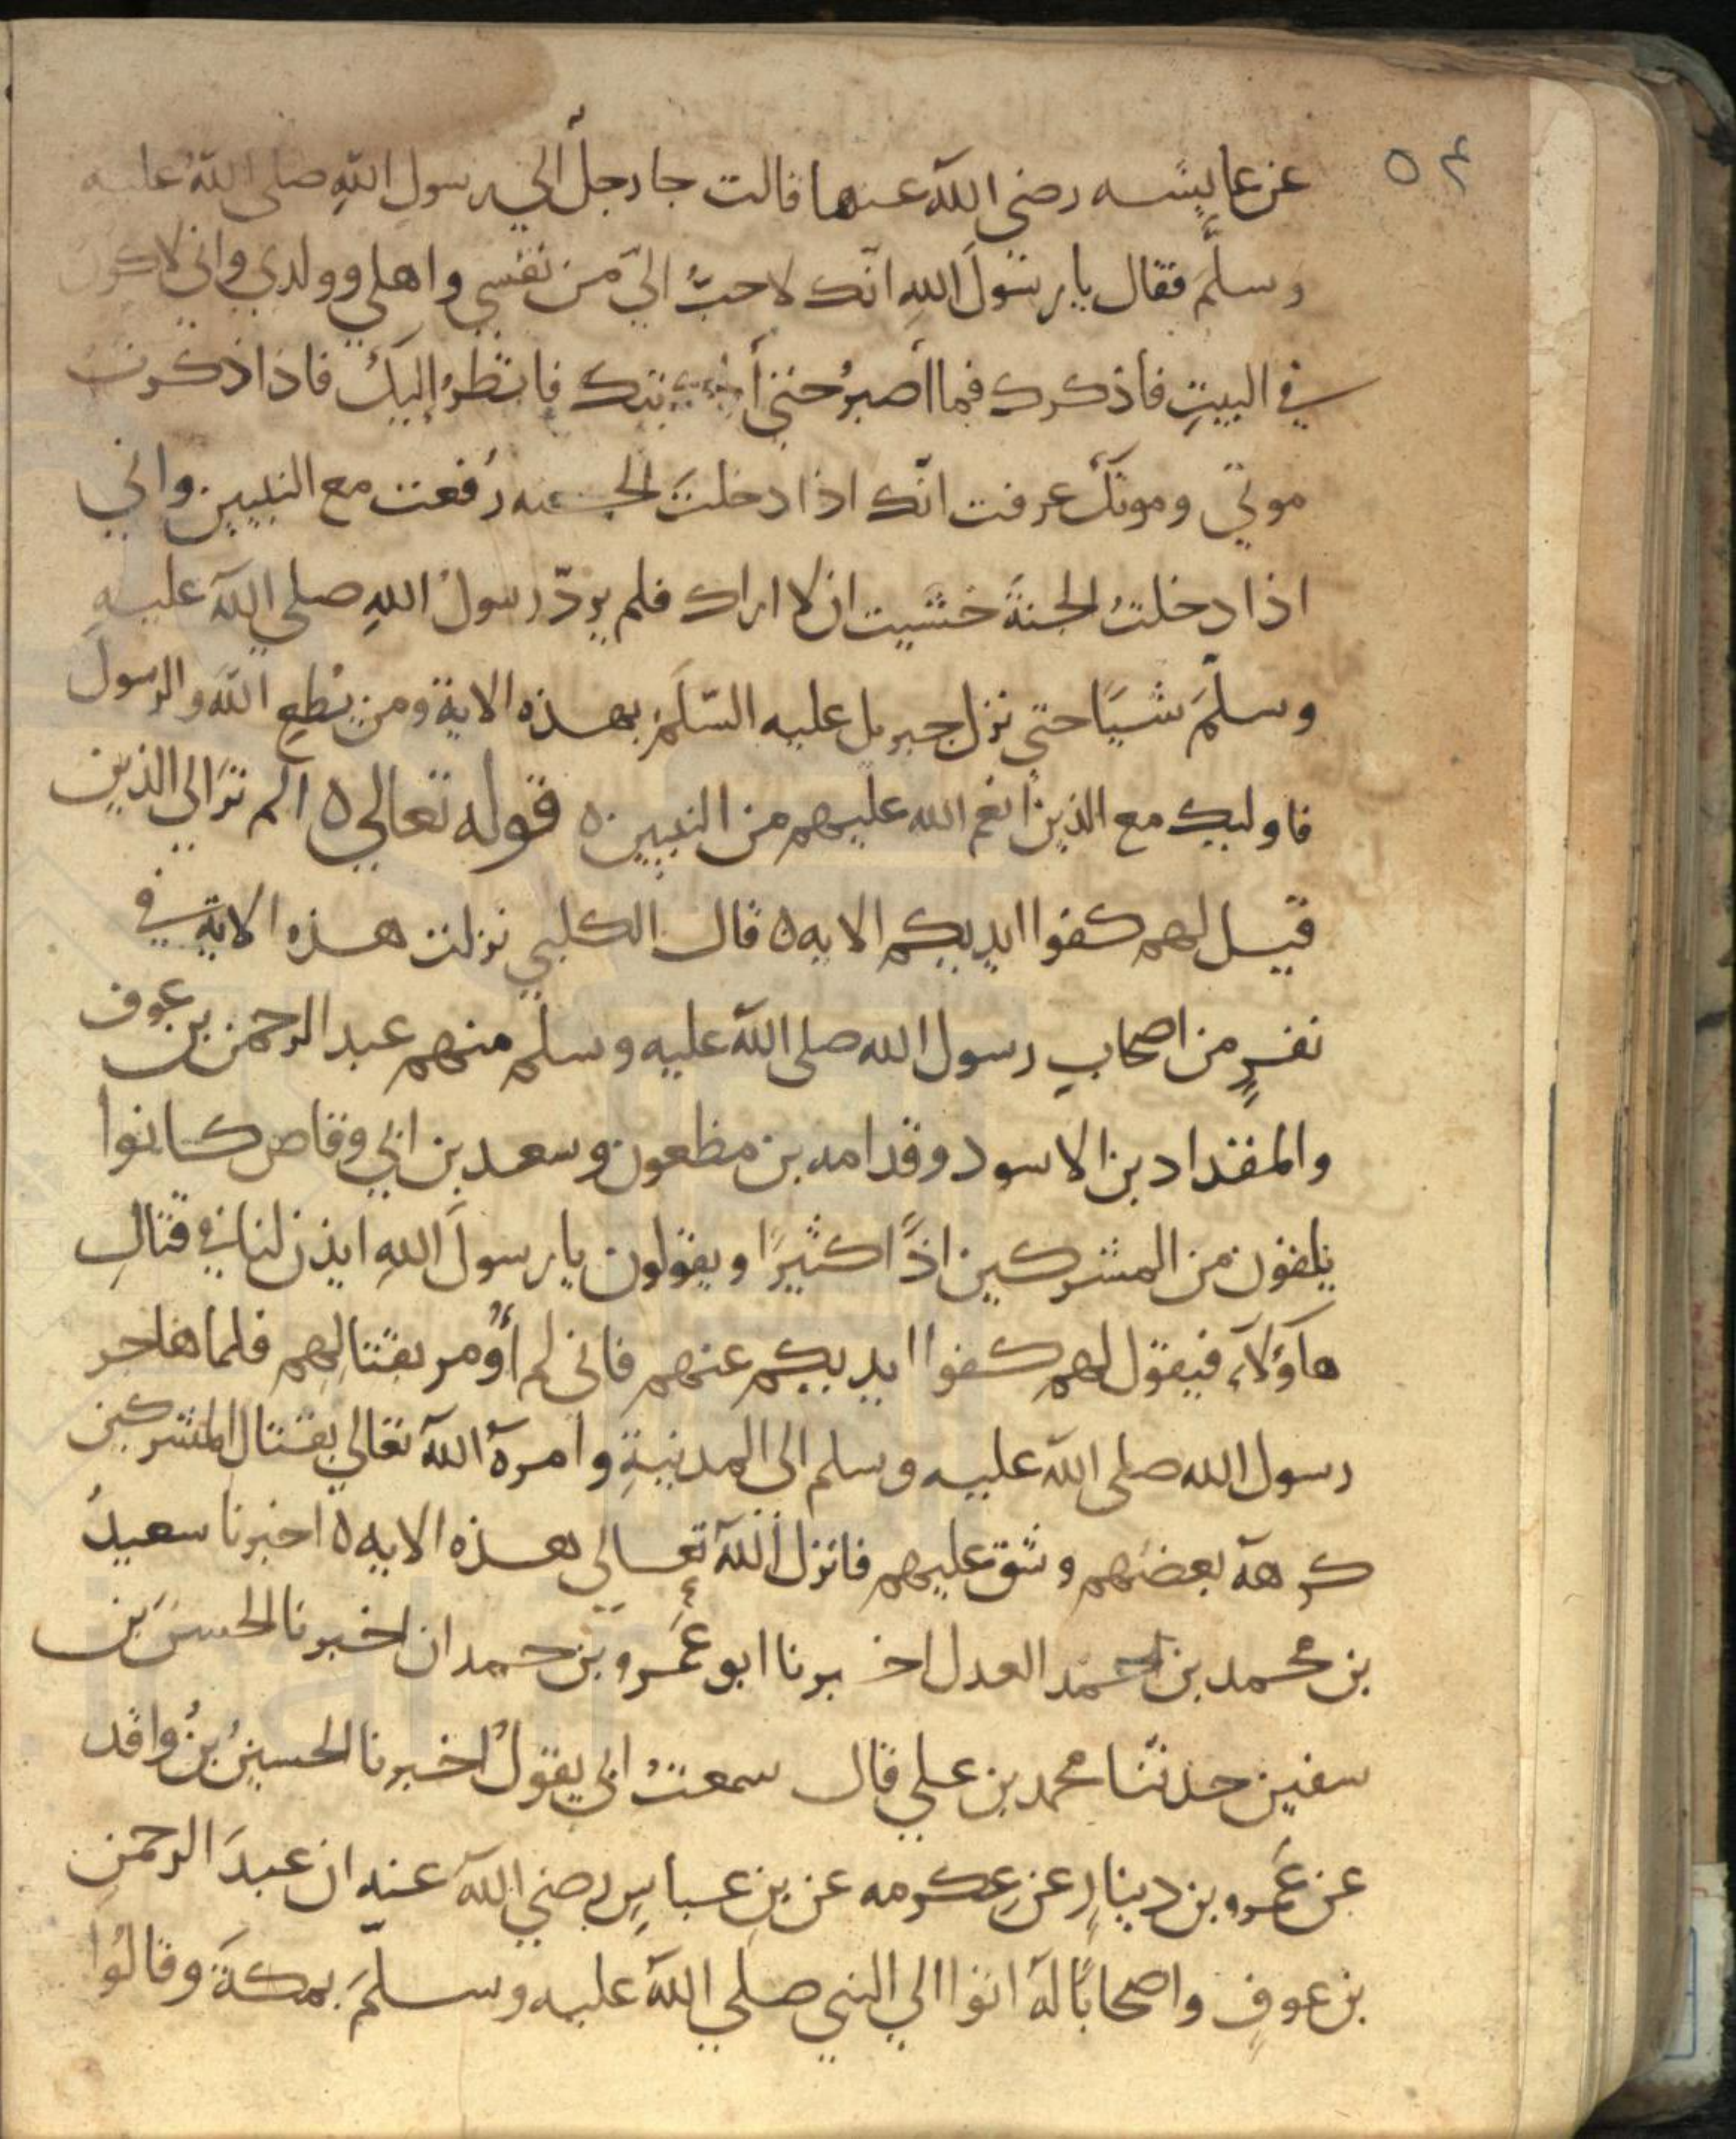 ٥٤
عن عايشه رضي الله عنها قالت جا رجلٌ الي رسول اللهِ صلي اللهُ عليه
وسلَّمَ فقال يا رسولَ اللهِ انّك لاحبُّ اليّ من نفسي واهلي وولدي واني لاكون
في البيتِ فاذكرك فما أصبرُ حتي أتيتك فانظرُ إليكَ فاذا ذكرت
موتي وموتكَ عرفت انّك اذا دخلتَ الجنه رُفعت مع النبيين واني
اذا دخلتُ الجنةَ خشيت ان لا اراك فلم يردّ رسولُ اللهِ صلي اللهَ عليهِ
وسلَّمَ شيًا حتي نزل جبريل عليه السّلَم بهذه الاية ومن يُطعِ اللهَ والرسولَ
فاوليك مع الذين أنعم الله عليهم من النبيين ٥ قوله تعالي ٥ الم ترَ الي الذين
قيل لهم كفوا ايديكم الايه ٥ قال الكلبي نزلت هذه الاية في
نفرٍ من اصحابِ رسول الله صلي اللهَ عليه وسلم منهم عبد الرحمن بن عوف
والمقداد بن الاسود وقدامه بن مظعون وسعد بن ابي وقاص كانوا
يلقون من المشركين اذًا كثيرًا ويقولون يا رسولَ اللهِ ايذن لنا في قتالِ
هآؤلآءِ فيقول لهم كفوا ايديكم عنهم فاني لم أُومر بقتالِهم فلما هاجر
رسول الله صلي اللهَ عليه وسلم الي المدينةِ وامرهُ اللهَ تعالي بقتال المشركين
كرهَه بعضهم وشق عليهم فانزل اللهَ تعالي هذه الايه ٥ اخبرنا سعيدُ
بن محمد بن احمد العدل اخبرنا ابو عَمرو بن حمدان اخبرنا الحسن بن
سفين حدثنا محمد بن علي قال سمعتُ ابي يقولُ اخبرنا الحسينُ بنُ واقد
عن عَمرو بن دينارٍ عن عِكرمه عن بنِ عباسٍ رضي اللهَ عنه ان عبدَ الرحمنِ
بن عوفٍ واصحابًا لهُ اتوا الي النبي صلي اللهَ عليه وسلّمَ بمكةَ وقالُوا